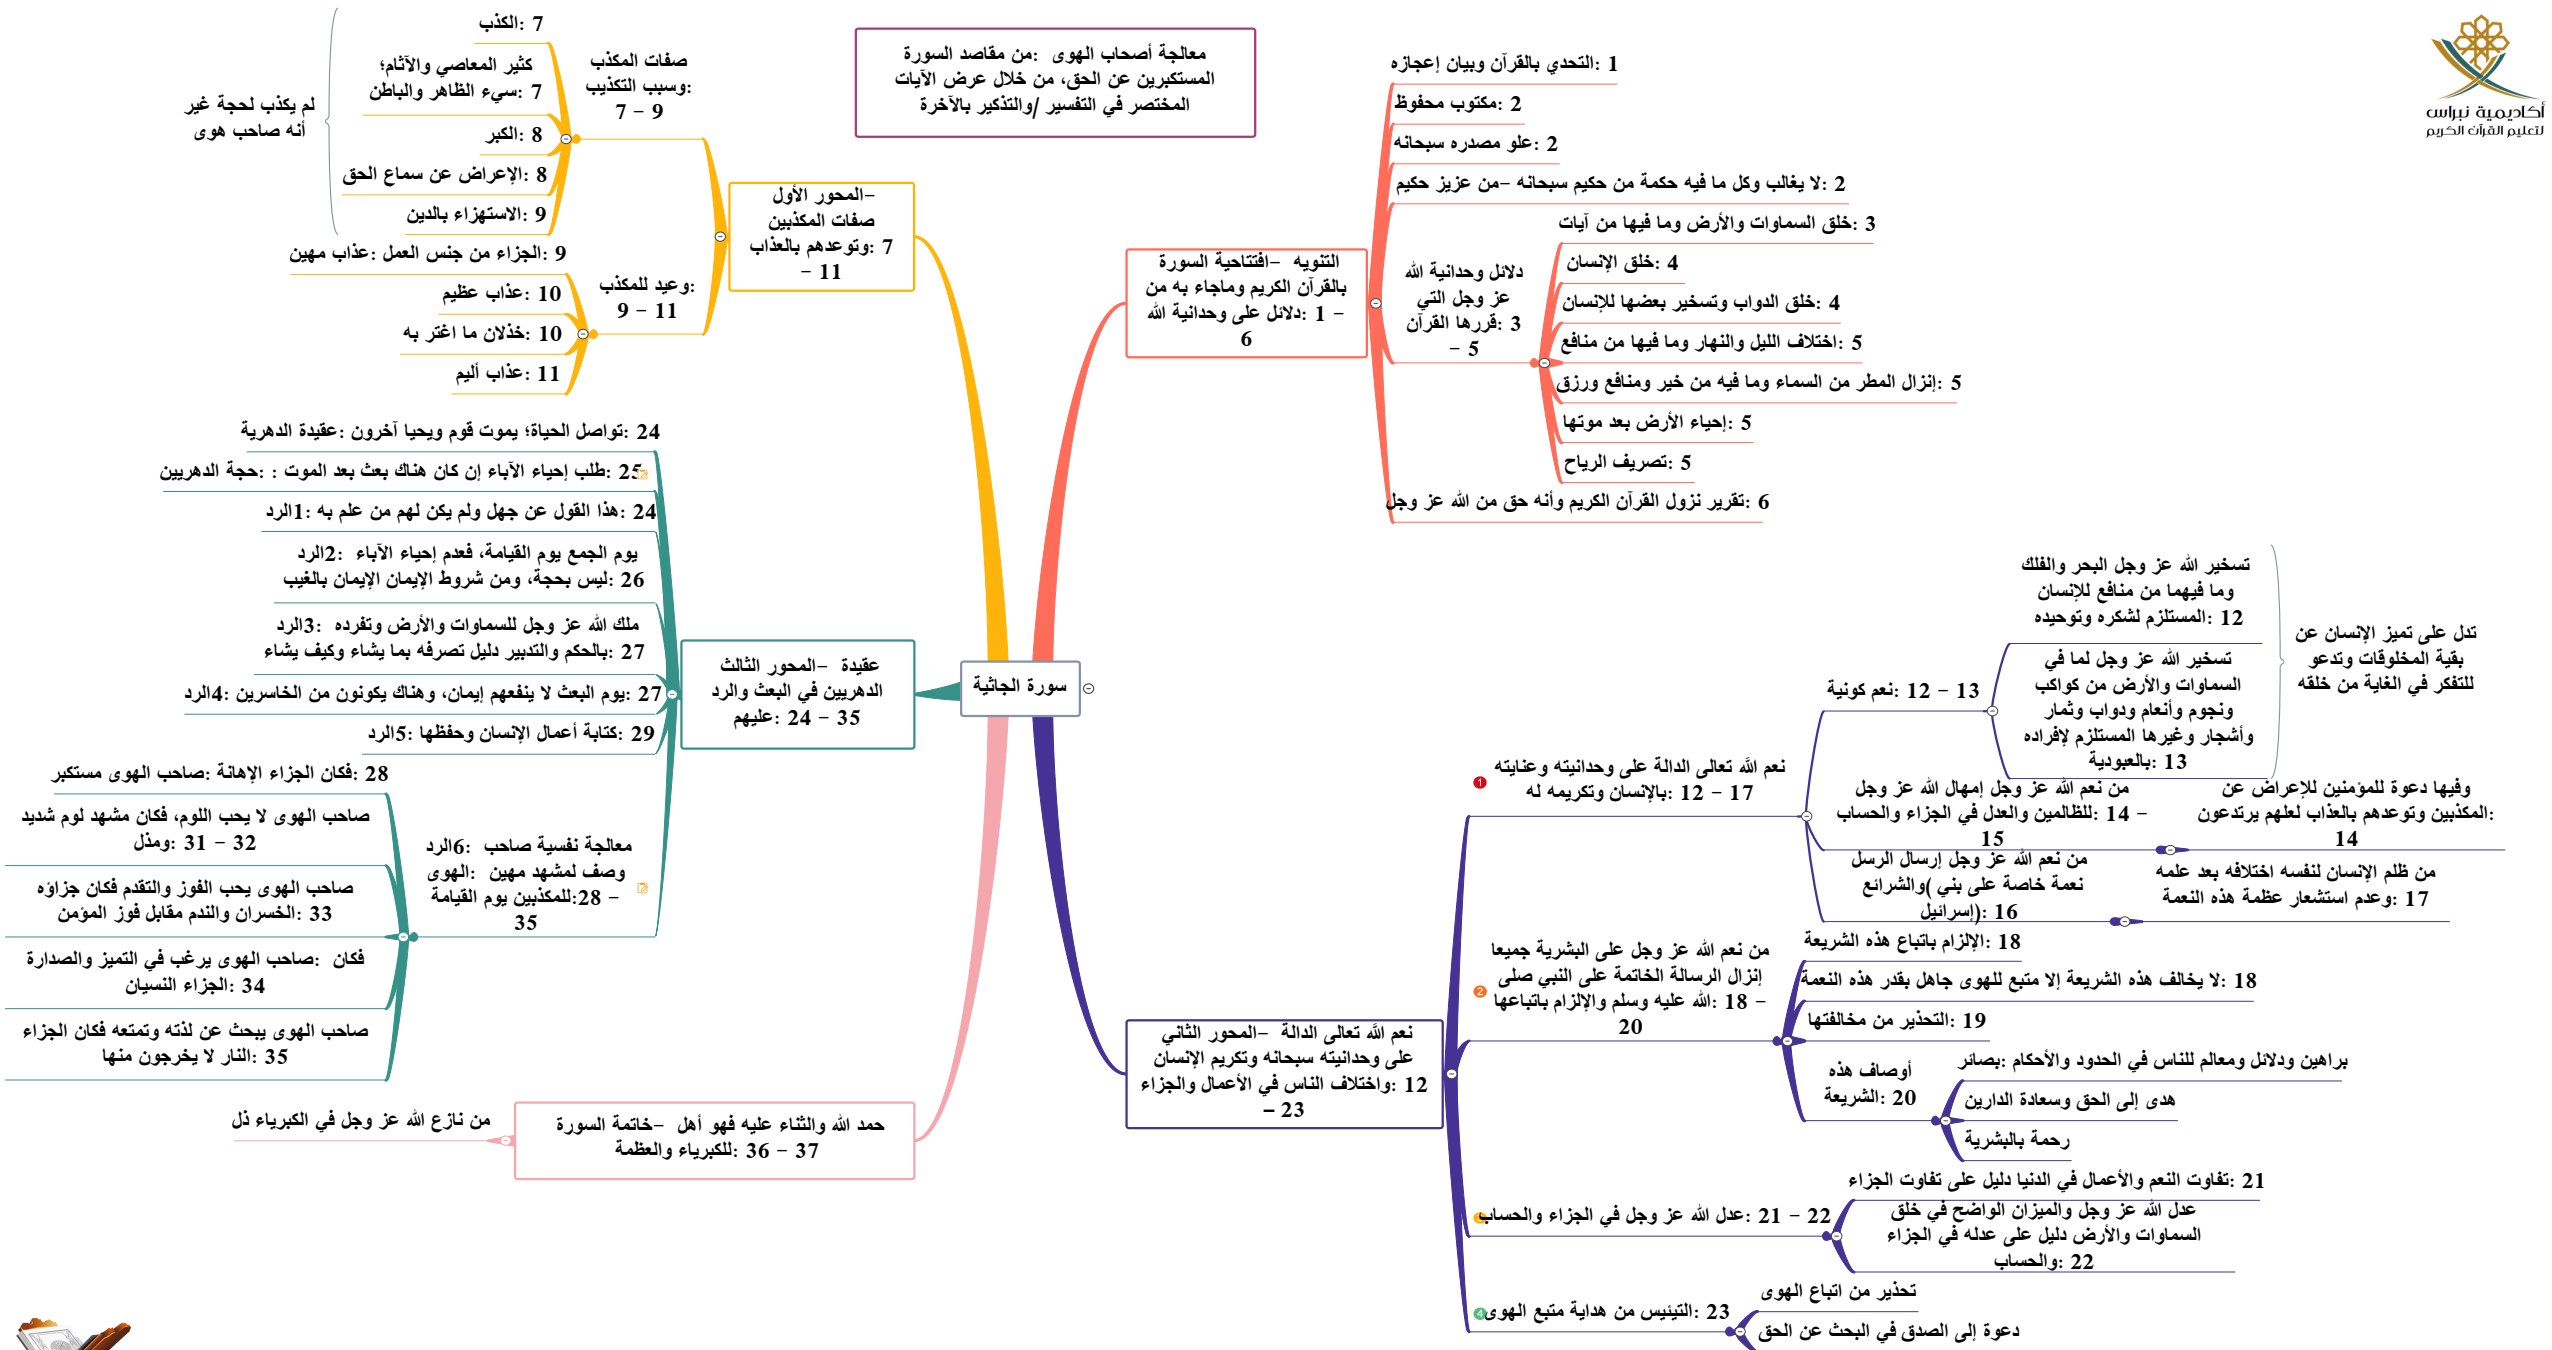 أكاديمية نبراس
لتعليم القرآن الكريم
معالجة أصحاب الهوى :من مقاصد السورة
المستكبرين عن الحق، من خلال عرض الآيات
المختصر في التفسير /والتذكير بالآخرة
سورة الجاثية
التنويه –افتتاحية السورة
بالقرآن الكريم وماجاء به من
– 1 :دلائل على وحدانية الله
6
1 :التحدي بالقرآن وبيان إعجازه
2 :مكتوب محفوظ
2 :علو مصدره سبحانه
2 :لا يغالب وكل ما فيه حكمة من حكيم سبحانه –من عزيز حكيم
دلائل وحدانية الله
عز وجل التي
3 :قررها القرآن
– 5
3 :خلق السماوات والأرض وما فيها من آيات
4 :خلق الإنسان
4 :خلق الدواب وتسخير بعضها للإنسان
5 :اختلاف الليل والنهار وما فيها من منافع
5 :إنزال المطر من السماء وما فيه من خير ومنافع ورزق
5 :إحياء الأرض بعد موتها
5 :تصريف الرياح
6 :تقرير نزول القرآن الكريم وأنه حق من الله عز وجل
–المحور الأول
صفات المكذبين
7 :وتوعدهم بالعذاب
– 11
صفات المكذب
:وسبب التكذيب
7 – 9
7 :الكذب
كثير المعاصي والآثام؛
7 :سيء الظاهر والباطن
8 :الكبر
8 :الإعراض عن سماع الحق
9 :الاستهزاء بالدين
لم يكذب لحجة غير
أنه صاحب هوى
:وعيد للمكذب
9 – 11
9 :الجزاء من جنس العمل :عذاب مهين
10 :عذاب عظيم
10 :خذلان ما اغتر به
11 :عذاب أليم
نعم الله تعالى الدالة –المحور الثاني
على وحدانيته سبحانه وتكريم الإنسان
12 :واختلاف الناس في الأعمال والجزاء
– 23
1
نعم الله تعالى الدالة على وحدانيته وعنايته
12 – 17 :بالإنسان وتكريمه له
12 – 13 :نعم كونية
تسخير الله عز وجل البحر والفلك
وما فيهما من منافع للإنسان
12 :المستلزم لشكره وتوحيده
تسخير الله عز وجل لما في
السماوات والأرض من كواكب
ونجوم وأنعام ودواب وثمار
وأشجار وغيرها المستلزم لإفراده
13 :بالعبودية
تدل على تميز الإنسان عن
بقية المخلوقات وتدعو
للتفكر في الغاية من خلقه
من نعم الله عز وجل إمهال الله عز وجل
– 14 :للظالمين والعدل في الجزاء والحساب
15
وفيها دعوة للمؤمنين للإعراض عن
:المكذبين وتوعدهم بالعذاب لعلهم يرتدعون
14
من نعم الله عز وجل إرسال الرسل
نعمة خاصة على بني )والشرائع
16 :(إسرائيل
من ظلم الإنسان لنفسه اختلافه بعد علمه
17 :وعدم استشعار عظمة هذه النعمة
2
من نعم الله عز وجل على البشرية جميعا
إنزال الرسالة الخاتمة على النبي صلى
– 18 :الله عليه وسلم والإلزام باتباعها
20
18 :الإلزام باتباع هذه الشريعة
18 :لا يخالف هذه الشريعة إلا متبع للهوى جاهل بقدر هذه النعمة
19 :التحذير من مخالفتها
أوصاف هذه
20 :الشريعة
براهين ودلائل ومعالم للناس في الحدود والأحكام :بصائر
هدى إلى الحق وسعادة الدارين
رحمة بالبشرية
21 – 22 :عدل الله عز وجل في الجزاء والحساب
21 :تفاوت النعم والأعمال في الدنيا دليل على تفاوت الجزاء
عدل الله عز وجل والميزان الواضح في خلق
السماوات والأرض دليل على عدله في الجزاء
22 :والحساب
4
23 :التيئيس من هداية متبع الهوى
تحذير من اتباع الهوى
دعوة إلى الصدق في البحث عن الحق
عقيدة –المحور الثالث
الدهريين في البعث والرد
24 – 35 :عليهم
24 :تواصل الحياة؛ يموت قوم ويحيا آخرون :عقيدة الدهرية
25 :طلب إحياء الآباء إن كان هناك بعث بعد الموت : :حجة الدهريين
24 :هذا القول عن جهل ولم يكن لهم من علم به :1الرد
يوم الجمع يوم القيامة، فعدم إحياء الآباء :2الرد
26 :ليس بحجة، ومن شروط الإيمان الإيمان بالغيب
ملك الله عز وجل للسماوات والأرض وتفرده :3الرد
27 :بالحكم والتدبير دليل تصرفه بما يشاء وكيف يشاء
27 :يوم البعث لا ينفعهم إيمان، وهناك يكونون من الخاسرين :4الرد
29 :كتابة أعمال الإنسان وحفظها :5الرد
معالجة نفسية صاحب :6الرد
وصف لمشهد مهين :الهوى
– 28:للمكذبين يوم القيامة
35
28 :فكان الجزاء الإهانة :صاحب الهوى مستكبر
صاحب الهوى لا يحب اللوم، فكان مشهد لوم شديد
31 – 32 :ومذل
صاحب الهوى يحب الفوز والتقدم فكان جزاؤه
33 :الخسران والندم مقابل فوز المؤمن
فكان :صاحب الهوى يرغب في التميز والصدارة
34 :الجزاء النسيان
صاحب الهوى يبحث عن لذته وتمتعه فكان الجزاء
35 :النار لا يخرجون منها
حمد الله والثناء عليه فهو أهل –خاتمة السورة
36 – 37 :للكبرياء والعظمة
من نازع الله عز وجل في الكبرياء ذل